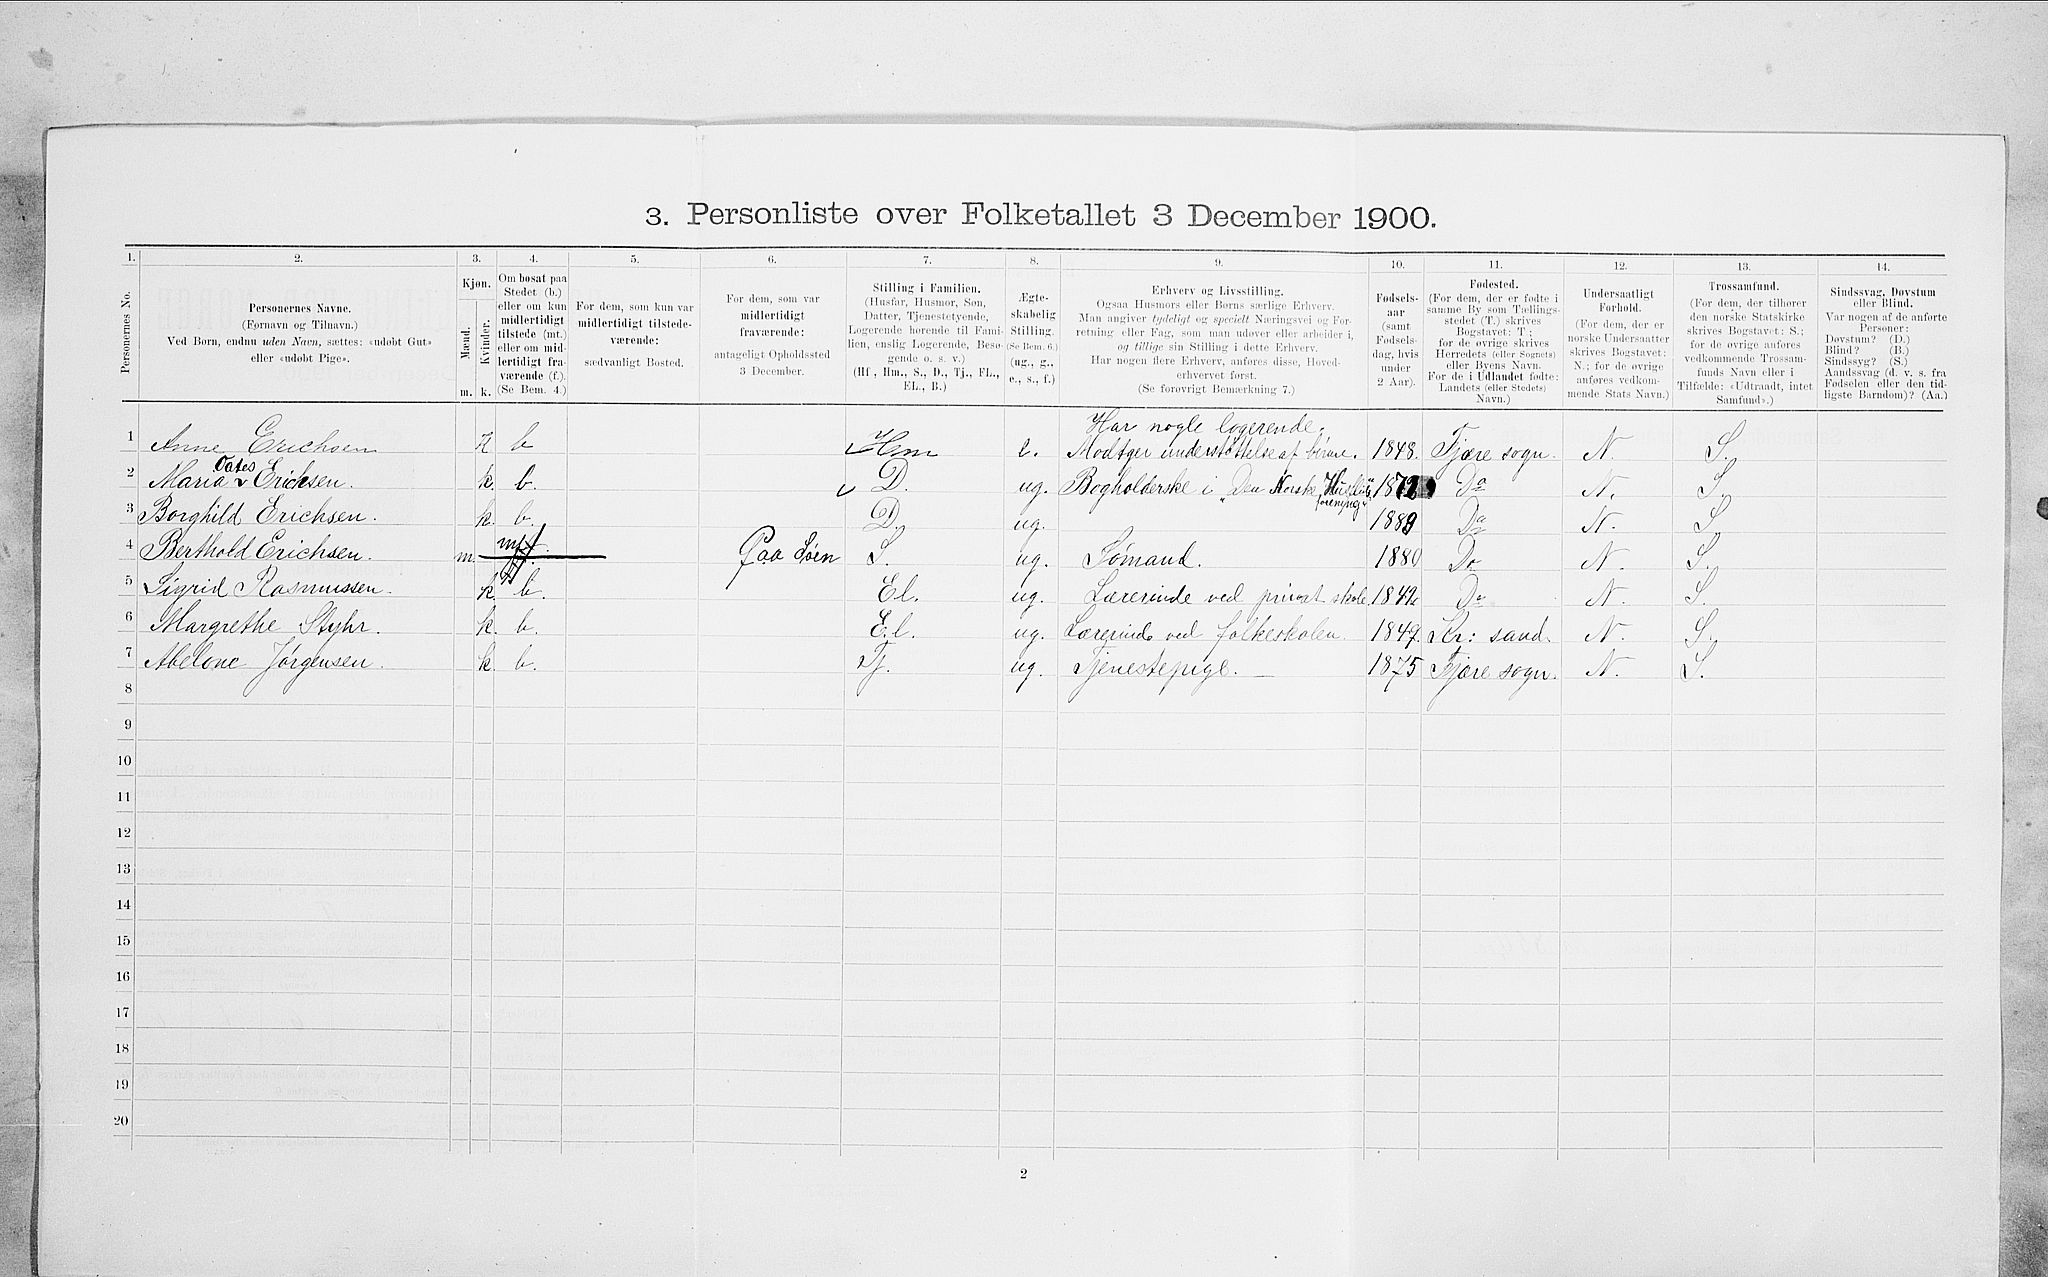 3. Personliste over Folketallet 3 December 1900.
1. 2. 3. 4. 5. 6. 7. 8. 9. 10. 11. 12. 13. 14.
Personernes No.
Personernes Navne.
(Fornavn og Tilnavn.)
Ved Børn, endnu uden Navn, sættes: «udøbt Gut»
eller «udøbt Pige».
Kjøn.
Mænd. Kvinder.
m. k.
Om bosat paa
Stedet (b.)
eller om kun
midlertidigt
tilstede (mt.)
eller om mid-
lertidigt fra-
værende (f.)
(Se Bem. 4.)
For dem, som kun var
midlertidigt tilstede-
værende:
sædvanligt Bosted.
For dem, som var
midlertidigt
fraværende:
antageligt Opholdssted
3 December.
Stilling i Familien.
(Husfar, Husmor, Søn,
Datter, Tjenestetyende,
Logerende hørende til Fami-
lien, enslig Logerende, Besø-
gende o. s. v.)
(Hf, Hm., S., D., Tj., FL.,
EL., B.)
Ægte-
skabelig
Stilling.
(Se Bem. 6.)
(ug., g.,
e., s., f.)
Erhverv og Livsstilling.
Ogsaa Husmors eller Børns særlige Erhverv.
Man angiver tydeligt og specielt Næringsvei og For-
retning eller Fag, som man udøver eller arbeider i,
og tillige sin Stilling i dette Erhverv.
Har nogen flere Erhverv, anføres disse, Hoved-
erhvervet først.
(Se forøvrigt Bemærkning 7.)
Fødsels-
aar
(samt
Fødsels-
dag, hvis
under
2 Aar).
Fødested.
(For dem, der er fødte i
samme By som Tællings-
stedet (T.) skrives
Bogstavet: T.;
for de øvrige skrives
Herredets (eller Sognets)
eller Byens Navn.
For de i Udlandet fødte:
Landets (eller Stedets)
Navn.)
Undersaatligt
Forhold.
(For dem, der er
norske Undersaatter
skrives Bogstavet:
N.; for de øvrige
anføres vedkom-
mende Stats Navn.)
Trossamfund.
(For dem, der tilhører
den norske Statskirke
skrives Bogstavet: S.;
for de øvrige anføres
vedkommende Trossam-
funds Navn eller i
Tilfælde: «Udtraadt, intet
Samfund».)
Sindssvag, Døvstum
eller Blind.
Var nogen af de anførte
Personer:
Døvstum? (D.)
Blind? (B.)
Sindssyg? (S.)
Aandssvag (d. v. s. fra
Fødselen eller den tid-
ligste Barndom)? (Aa.)
Har nogle logerende.
1 Anne Erichsen k b Hm e. Modtger understøttelse af børene. 1848. Fjære sogn. N. S.
Oates
2 Maria Ericksen. k. b. D. ug. Bogholderske i "Den Norske Husflids 1872 Do N. S.
forening"
3 Borghild Erichsen. k. b. D. ug. 1889 Do N. S.
4 Berthold Erichsen. m. Paa Søen S. ug. Sømand. 1880 Do N. S.
5 Sigrid Rasmussen. k. b. El. ug. Lærerinde ved privat skole 1842 Do N. S.
6 Margrethe Styhr. k. b. El. ug. Lærerinde ved folkeskolen. 1849. Kr: sand. N. S.
7 Abelone Jørgensen. k. b. Tj. ug. Tjenestepige. 1875 Fjære sogn. N. S.
8
9
10
11
12
13
14
15
16
17
18
19
20
2